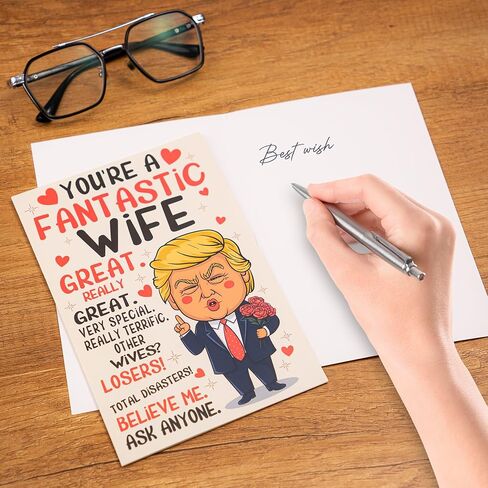 YOU'RE A
FANTASTIC
WiFE
GREAT.
REALLY
GREAT.
VERY SPECIAL.
REALLY TERRIFIC.
OTHER
WIVES?
LOSERS!
TOTAL DISASTERS!
BELIEVE ME.
ASK ANYONE.
Best wish